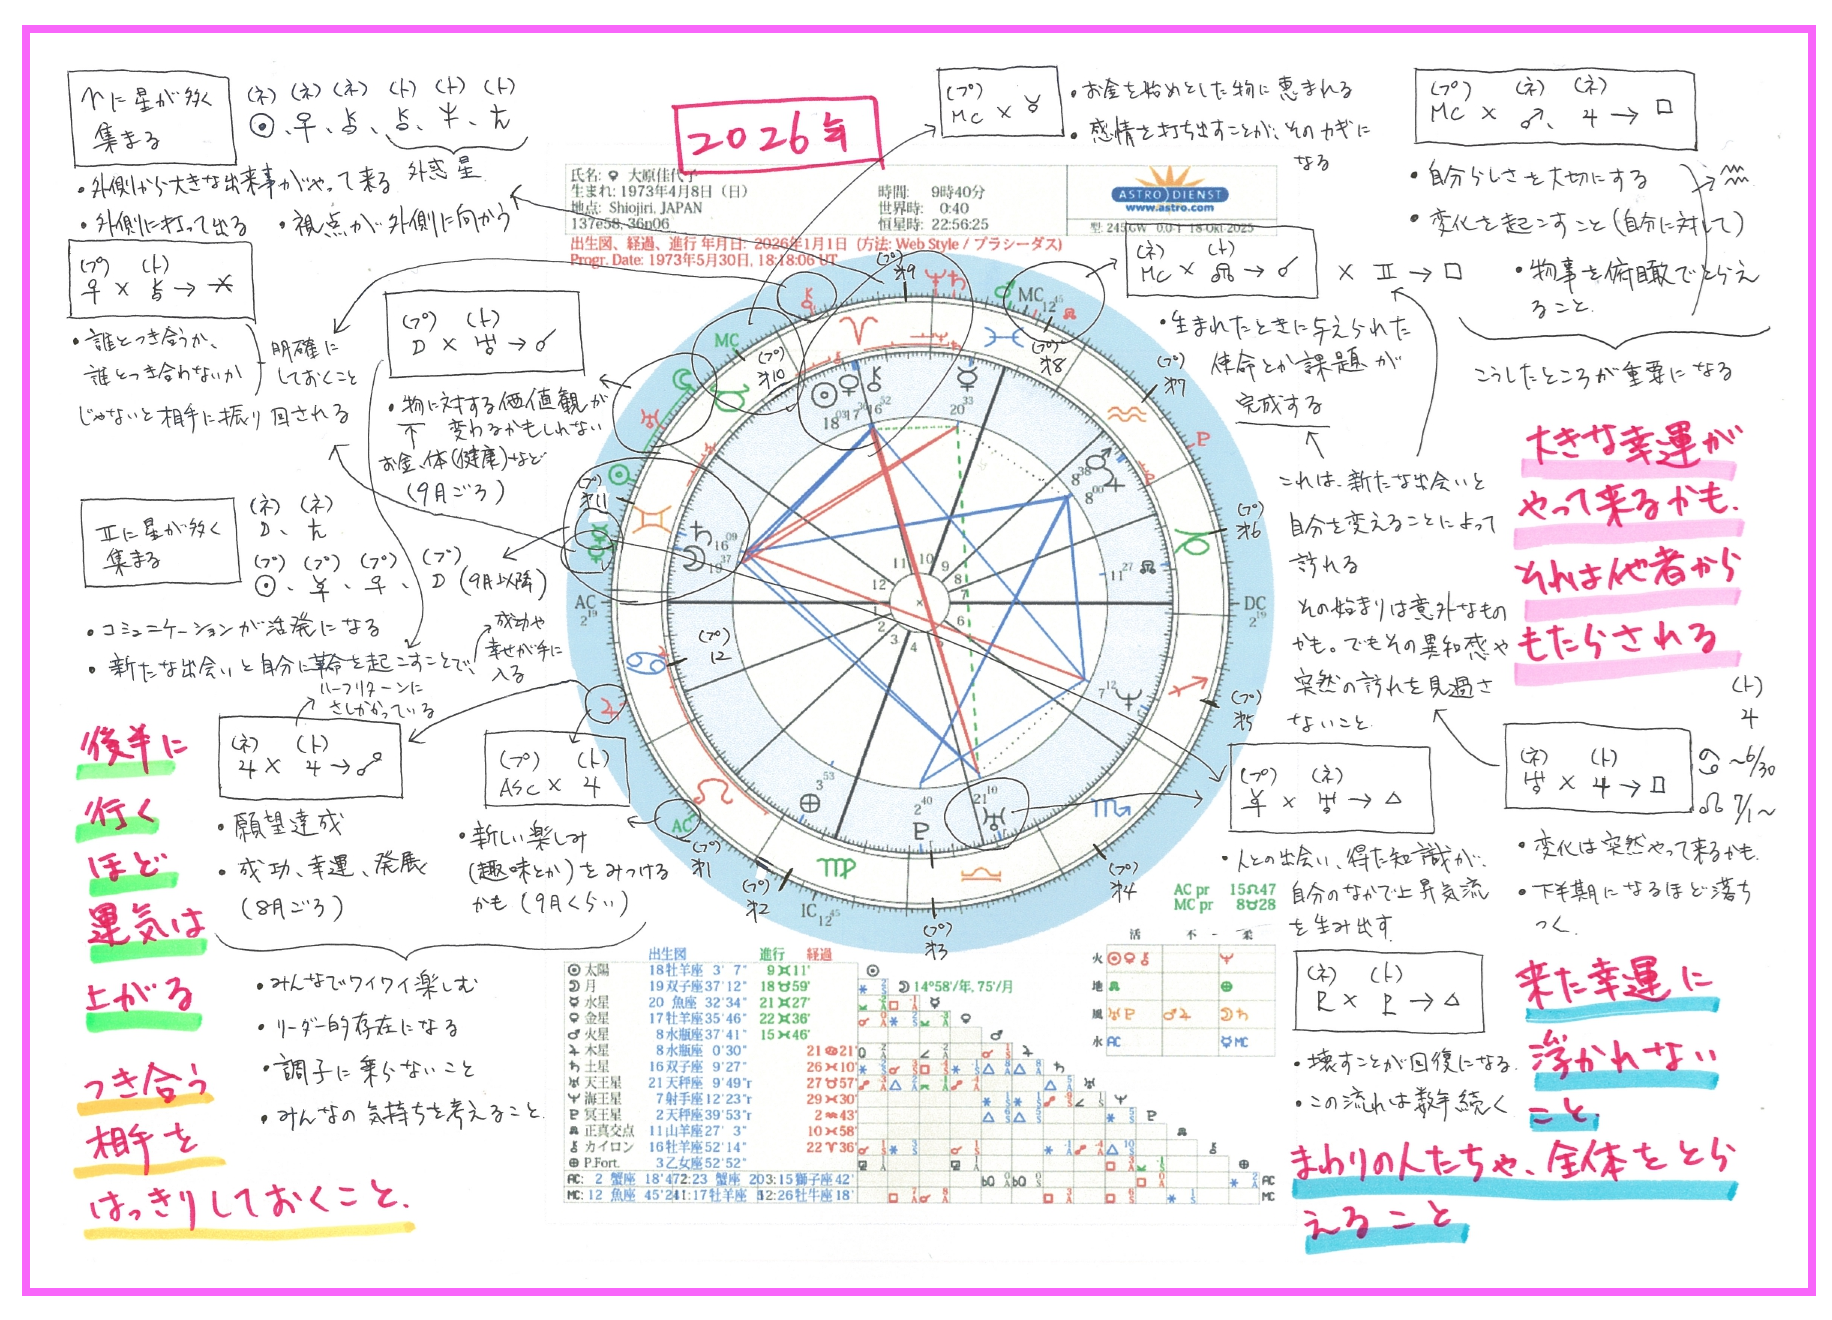 ♈に星が多く
集まる
(ネ) (ネ) (ネ) (ト) (ト) (ト)
☉、♀、⚷、⚷、♆、♄
外惑星
・外側から大きな出来事がやって来る
・外側に打って出る ・視点が外側に向かう
(プ) (ト)
♀ × ⚷ → ⚹
・誰とつき合うか、
誰とつき合わないか
明確に
しておくこと
じゃないと相手に振り回される
(プ) (ト)
☽ × ♅ → ☌
・物に対する価値観が
変わるかもしれない
↑
お金、体(健康)など
(9月ごろ)
♊に星が多く
集まる
(ネ) (ネ)
☽、♄
(プ) (プ) (プ) (プ)
☉、☿、♀、☽ (9月以降)
・コミュニケーションが活発になる
・新たな出会いと自分に革命を起こすことで、
成功や
幸せが手に
入る
ハーフリターンに
さしかかっている
(ネ) (ト)
♃ × ♃ → ☍
・願望達成
・成功、幸運、発展
(8月ごろ)
(プ) (ト)
ASC × ♃
・新しい楽しみ
(趣味とか)をみつける
かも(9月くらい)
・みんなでワイワイ楽しむ
・リーダー的存在になる
・調子に乗らないこと
・みんなの気持ちを考えること.
後半に
行く
ほど
運気は
上がる
つき合う
相手を
はっきりしておくこと.
2026年
(プ)
MC × ♉
・お金を始めとした物に恵まれる
・感情を打ち出すことが、そのカギに
なる
(プ) (ネ) (ネ)
MC × ♂、♃ → □
・自分らしさを大切にする
・変化を起こすこと(自分に対して)
・物事を俯瞰でとらえ
ること.
♒
こうしたところが重要になる
(ネ) (ト)
MC × ☊ → ☌
× ♊ → □
・生まれたときに与えられた
使命とか課題が
完成する
これは、新たな出会いと
自分を変えることによって
訪れる
その始まりは意外なもの
かも。でもその異和感や
突然の訪れを見過さ
ないこと.
大きな幸運が
やって来るかも.
それは他者から
もたらされる
(ト)
♃
♋ ~6/30
♌ 7/1~
(ネ) (ト)
♅ × ♃ → □
・変化は突然やって来るかも.
・下半期になるほど落ち
つく.
(プ) (ネ)
☿ × ♅ → △
・人との出会い、得た知識が、
自分のなかで上昇気流
を生み出す.
(ネ) (ト)
♇ × ♇ → △
・壊すことが回復になる.
・この流れは数年続く
来た幸運に
浮かれない
こと.
まわりの人たちや、全体をとら
えること
氏名: ♀ 大原佳代子
生まれ: 1973年4月8日(日)
地点: Shiojiri, JAPAN
137e58, 36n06
時間: 9時40分
世界時: 0:40
恒星時: 22:56:25
ASTRO DIENST
www.astro.com
型: 245.GW 0.0-1 18-Okt-2025
出生図、経過、進行 年月日: 2026年1月1日 (方法: Web Style / プラシーダス)
Progr. Date: 1973年5月30日, 18:18:06 UT
MC
AC
DC
IC
(プ)オ9
(プ)オ10
(プ)オ11
(プ)12
(プ)オ1
(プ)オ2
(プ)オ3
(プ)オ4
(プ)オ5
(プ)オ6
(プ)オ7
(プ)オ8
AC pr 15♌47
MC pr 8♉28
出生図 進行 経過
☉太陽 18牡羊座 3' 7" 9♊11'
☽月 19双子座37'12" 18♉59'
☿水星 20 魚座 32'34" 21♊27'
♀金星 17牡羊座35'46" 22♊36'
♂火星 8水瓶座37'41" 15♓46'
♃木星 8水瓶座 0'30" 21♋21'
♄土星 16双子座 9'27" 26♓10'
♅天王星 21天秤座 9'49"r 27♉57'
♆海王星 7射手座12'23"r 29♓30'
♇冥王星 2天秤座39'53"r 2♒43'
☊正真交点 11山羊座27' 3" 10♓58'
⚷カイロン 16牡羊座52'14" 22♈36'
⊕P.Fort. 3乙女座52'52"
AC: 2 蟹座 18'47 2:23 蟹座 20 3:15獅子座42'
MC: 12 魚座 45'24 11:17牡羊座 12:26牡牛座18'
☽14°58'/年, 75'/月
活 不 - 柔
火
地
風
水